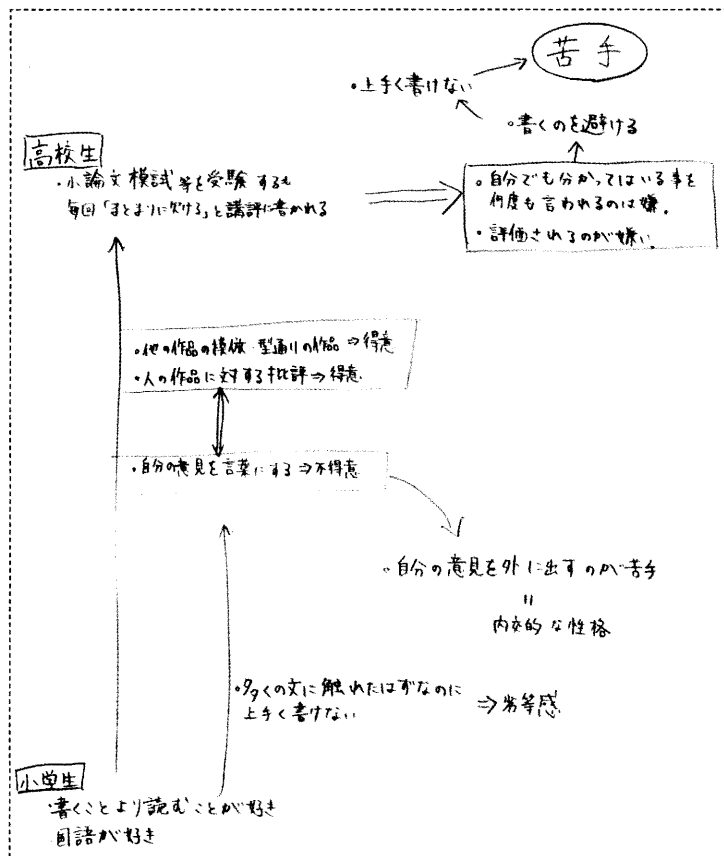 苦手
・上手く書けない
・書くのを避ける
高校生
・小論文模試等を受験するも
毎回「まとまりに欠ける」と講評に書かれる
・自分でも分かってはいる事を
何度も言われるのは嫌.
・評価されるのが嫌い.
・他の作品の模倣・型通りの作品⇒得意
・人の作品に対する批評⇒得意
・自分の意見を言葉にする⇒不得意
・自分の意見を外に出すのが苦手
=
内交的な性格
・多くの文に触れたはずなのに
上手く書けない
⇒劣等感
小学生
・書くことより読むことが好き
国語が好き